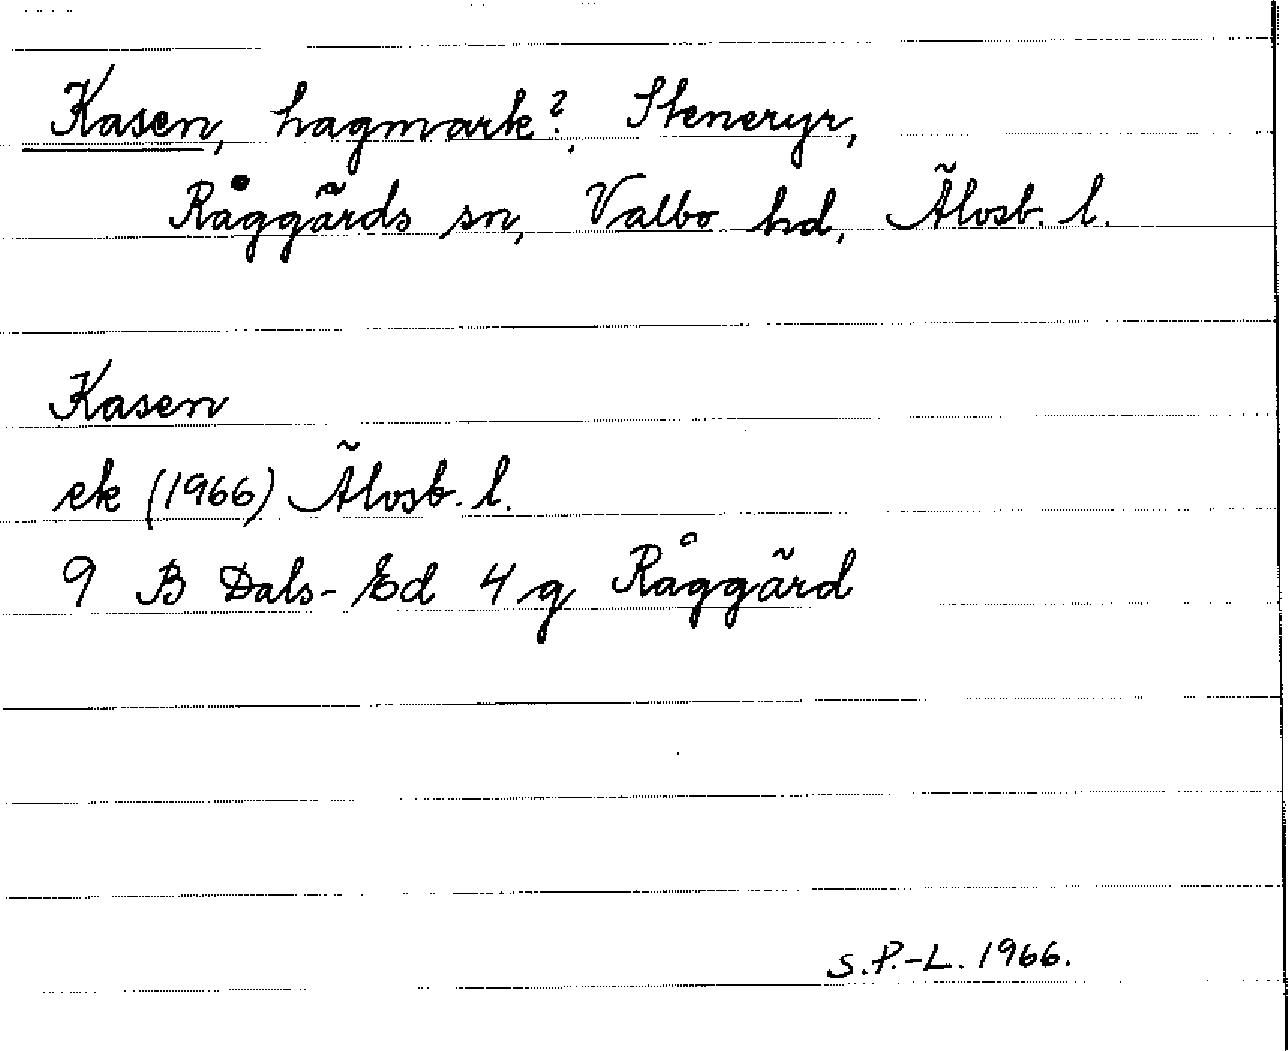 Kasen, hagmark?, Steneryr,
Råggärds sn, Valbo hd, Älvsb. l.
Kasen
ek (1966) Älvsb. l.
9 B Dals-Ed 4 g Råggärd
S.P.-L. 1966.